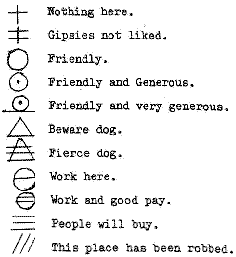 Nothing here.
Gipsies not liked.
Friendly.
Friendly and Generous.
Friendly and very generous.
Beware dog.
Fierce dog.
Work here.
Work and good pay.
People will buy.
This place has been robbed.